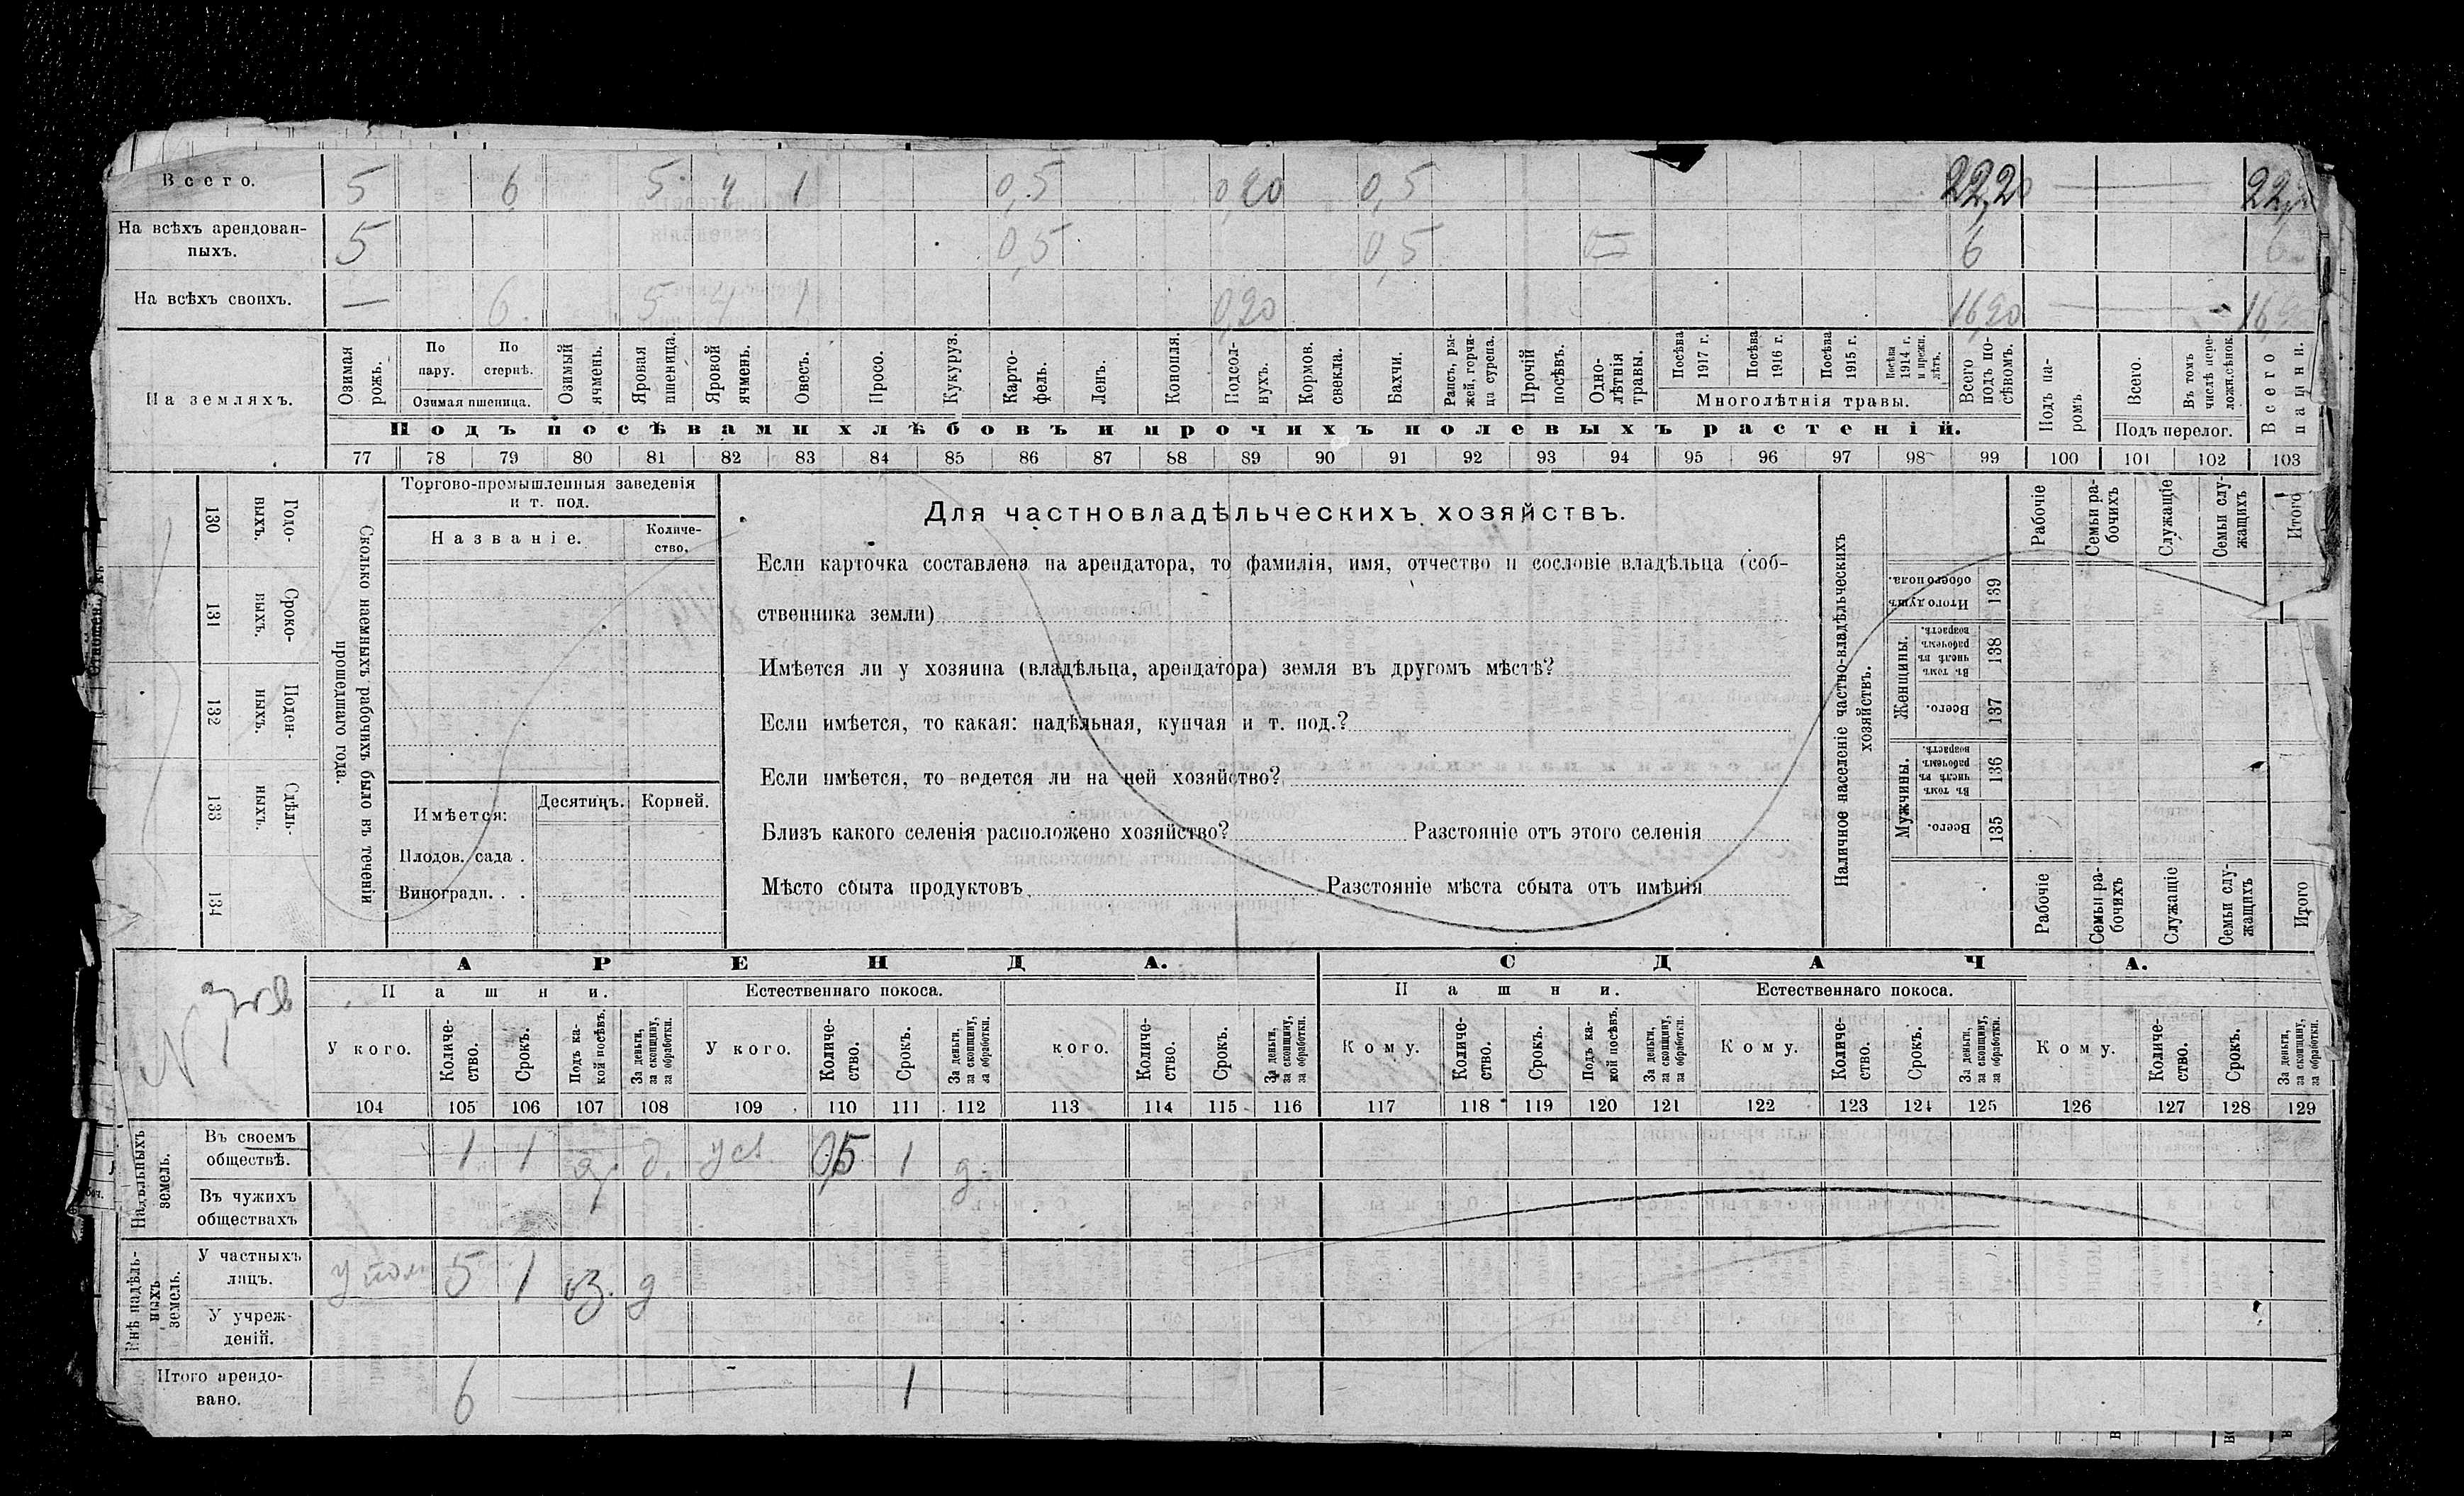 Всего. 5 6 5 4 1 0,5 0,20 0,5 22,20 — 22,
На всѣхъ арендован-
ныхъ. 5 0,5 0,5 6 6
На всѣхъ своихъ. — 6. 5 4 1 0,20 16,20 — 16,
На земляхъ.
Озимая рожь.
По пару.
По стернѣ.
Озимая пшеница.
Озимый ячмень.
Яровая пшеница.
Яровой ячмень.
Овесъ.
Просо.
Кукуруз.
Карто-
фель.
Ленъ.
Конопля.
Подсол-
нухъ.
Кормов.
свекла.
Бахчи.
Рапсъ, ры-
жей, горчи-
ца сурепа.
Прочій
посѣвъ.
Одно-
лѣтнія
травы.
Посѣва
1917 г.
Посѣва
1916 г.
Посѣва
1915 г.
Посѣва
1914 г.
и прежн.
лѣтъ.
Многолѣтнія травы.
Всего
подъ по-
сѣвомъ.
Подъ па-
ромъ
Всего.
Въ томъ
числѣ пере-
ложн.сѣнок.
Подъ перелог.
Всего
пашни.
Подъ посѣвами хлѣбовъ и прочихъ полевыхъ растеній.
77 78 79 80 81 82 83 84 85 86 87 88 89 90 91 92 93 94 95 96 97 98 99 100 101 102 103
130 Годо-
выхъ.
131 Сроко-
выхъ.
132 Поден-
ныхъ.
133 Сдѣль-
ныхъ.
134
Сколько наемныхъ рабочихъ было въ теченіи
прошедшаго года.
Торгово-промышленныя заведенія
и т. под.
Названіе.
Количе-
ство.
Имѣется:
Десятинъ.
Корней.
Плодов. сада .
Виноградн. . .
Для частновладѣльческихъ хозяйствъ.
Если карточка составлена на арендатора, то фамилія, имя, отчество и сословіе владѣльца (соб-
ственника земли)
Имѣется ли у хозяина (владѣльца, арендатора) земля въ другомъ мѣстѣ?
Если имѣется, то какая: надѣльная, купчая и т. под.?
Если имѣется, то ведется ли на ней хозяйство?
Близъ какого селенія расположено хозяйство? Разстояніе отъ этого селенія
Мѣсто сбыта продуктовъ Разстояніе мѣста сбыта отъ имѣнія
Наличное населеніе частно-владѣльческихъ
хозяйствъ.
Рабочіе
Семьи ра-
бочихъ
Служащіе
Семьи слу-
жащихъ
Итого
Итого душъ
обоего пола.
139
Женщины.
Въ томъ
числѣ въ
рабочемъ
возрастѣ.
138
Всего.
137
Мужчины.
Въ томъ
числѣ въ
рабочемъ
возрастѣ.
136
Всего.
135
Рабочіе
Семьи ра-
бочихъ
Служащіе
Семьи слу-
жащихъ
Итого
АРЕНДА. СДАЧА.
Пашни. Естественнаго покоса. Пашни. Естественнаго покоса.
У кого.
Количе-
ство.
Срокъ.
Подъ ка-
кой посѣвъ.
За деньги,
за скопщину,
за обработки.
У кого.
Количе-
ство.
Срокъ.
За деньги,
за скопщину,
за обработки.
кого.
Количе-
ство.
Срокъ.
За деньги,
за скопщину,
за обработки.
Кому.
Количе-
ство.
Срокъ.
Подъ ка-
кой посѣвъ.
За деньги,
за скопщину,
за обработки.
Кому.
Количе-
ство.
Срокъ.
За деньги,
за скопщину,
за обработки.
Кому.
Количе-
ство.
Срокъ.
За деньги,
за скопщину,
за обработки.
104 105 106 107 108 109 110 111 112 113 114 115 116 117 118 119 120 121 122 123 124 125 126 127 128 129
Надѣльныхъ
земель.
Въ своемъ
обществѣ. 1 1 д. 05 1 д
Въ чужихъ
обществахъ
Внѣ надѣль-
ныхъ
земель.
У частныхъ
лицъ. 5 1 оз. д
У учреж-
деній.
Итого арендо-
вано. 6 — 1